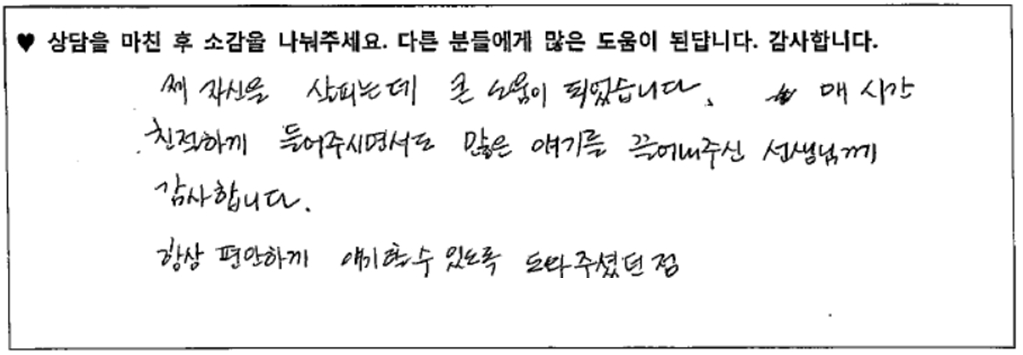 ♥ 상담을 마친 후 소감을 나눠주세요. 다른 분들에게 많은 도움이 된답니다. 감사합니다.
제 자신을 살피는데 큰 도움이 되었습니다. 매 시간
친절하게 들어주시면서도 많은 얘기를 끌어내주신 선생님께
감사합니다.
항상 편안하게 얘기할 수 있도록 도와주셨던 점